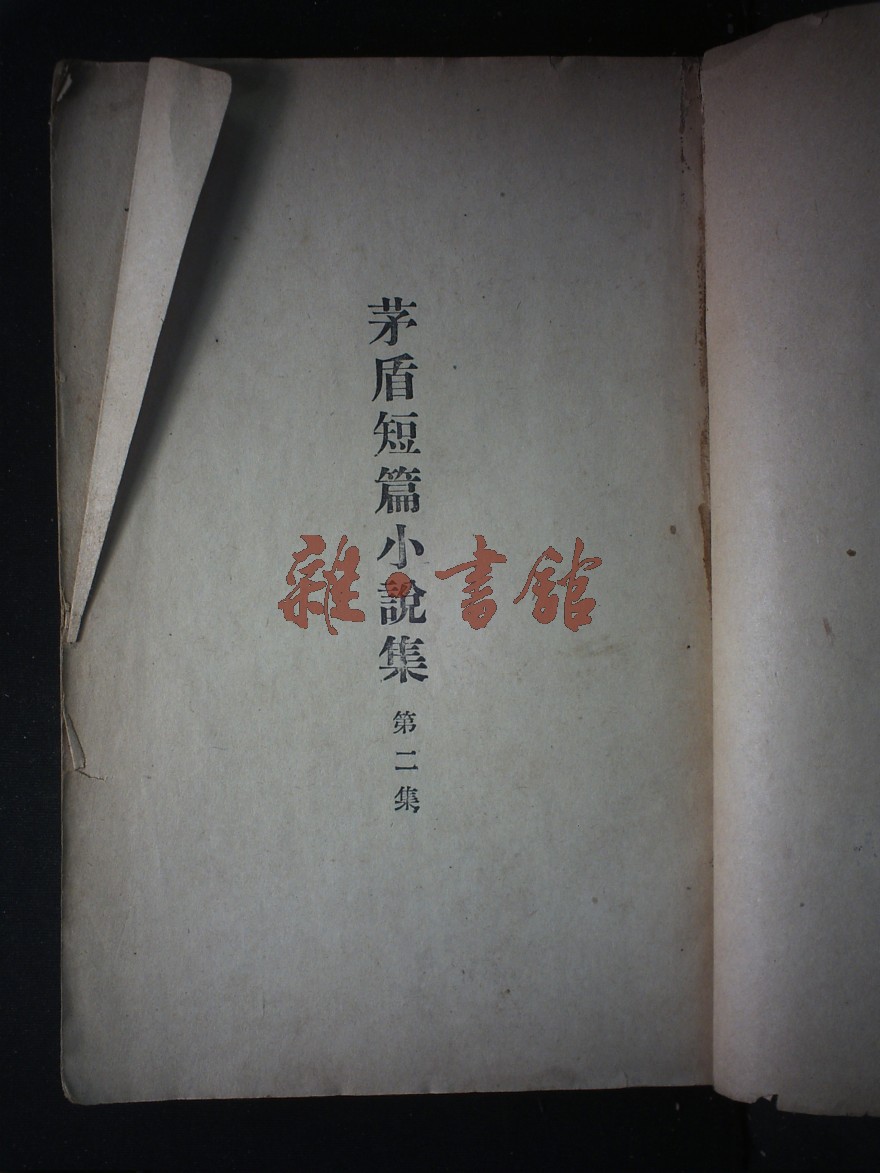 茅盾短篇小說集 第二集
雜·書館